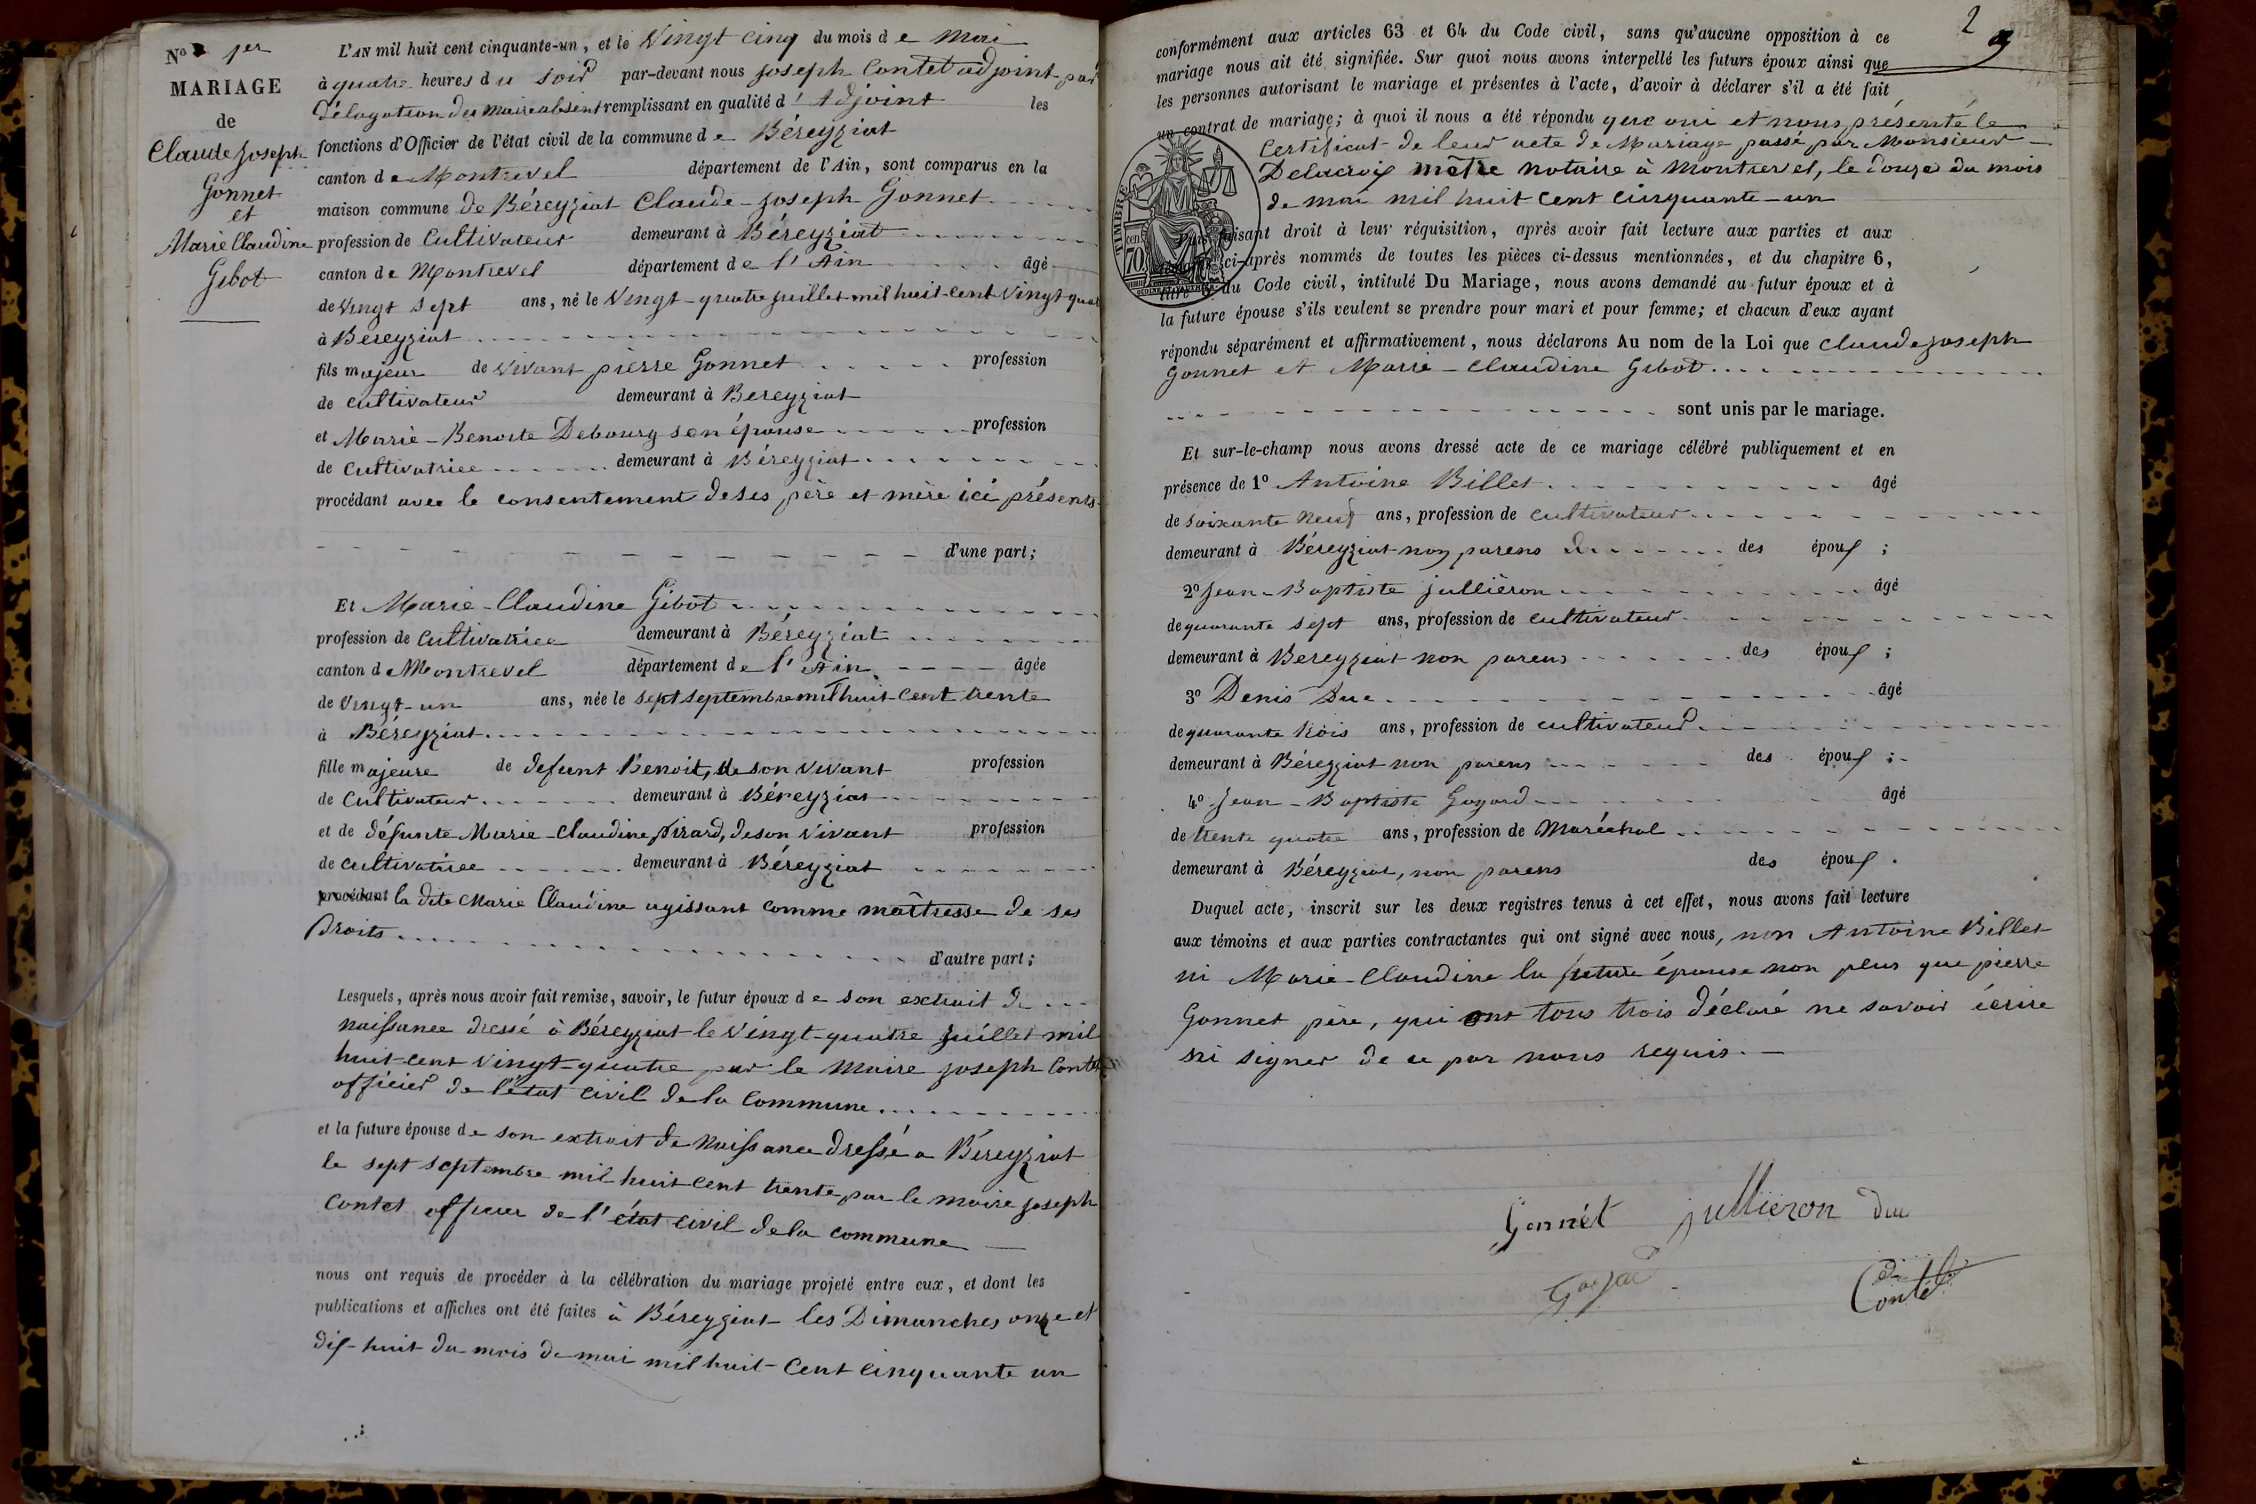 No 1er
MARIAGE
de
Claude Joseph
Gonnet
et
Marie Claudine
Gibot
L'AN mil huit cent cinquante-un, et le Vingt cinq du mois de Mai
à quatre heures du soir par-devant nous joseph Contet adjoint par
Délagation du Maire absent remplissant en qualité d'Adjoint les
fonctions d'Officier de l'état civil de la commune de Béreyziat
canton de Montrevel département de l'Ain, sont comparus en la
maison commune de Béreyziat Claude-joseph Gonnet
profession de Cultivateur demeurant à Béreyziat
canton de Montrevel département de l'Ain âgé
de vingt sept ans, né le Vingt-quatre juillet mil huit-cent Vingt-qua
à Béreyziat
fils majeur de vivant pierre Gonnet profession
de cultivateur demeurant à Bereyziat
et Marie-Benoite Debourg son épouse profession
de Cultivatrice demeurant à Béreyziat
procédant avec le consentement de ses père et mère ici présents
d'une part;
Et Marie-Claudine Gibot
profession de Cultivatrice demeurant à Béreyziat
canton de Montrevel département de l'Ain âgée
de Vingt-un ans, née le sept septembre mil huit-cent trente
à Béreyziat
fille majeure de defunt Benoit, de son vivant profession
de Cultivateur demeurant à Béreyziat
et de défunte Marie-Claudine pirard, de son vivant profession
de cultivatrice demeurant à Béreyziat
procédant la dite Marie Claudine agissant comme maîtresse de ses
Droits
d'autre part;
Lesquels, après nous avoir fait remise, savoir, le futur époux de son extrait de
naissance dressé à Béreyziat le Vingt-quatre Juillet mil
huit-cent vingt-quatre par le Maire joseph Contet
officier de l'état civil de la Commune
et la future épouse de son extrait de Naissance dressé a Béreyziat
le sept septembre mil huit cent trente par le maire joseph
Contet officier de l'état civil de la commune
nous ont requis de procéder à la célébration du mariage projeté entre eux, et dont les
publications et affiches ont été faites à Béreyziat les Dimanches onze et
dix-huit du mois de mai mil huit-Cent cinquante un
2
conformément aux articles 63 et 64 du Code civil, sans qu'aucune opposition à ce
mariage nous ait été signifiée. Sur quoi nous avons interpellé les futurs époux ainsi que
les personnes autorisant le mariage et présentes à l'acte, d'avoir à déclarer s'il a été fait
un contrat de mariage; à quoi il nous a été répondu que oui et nous présenté le
Certificat de leur acte de Mariage passé par Monsieur
Delacroix mêtre notaire à Montrevel, le douze du mois
de mai mil huit cent cinquante-un
TIMBRE
70
faisant droit à leur réquisition, après avoir fait lecture aux parties et aux
ci-après nommés de toutes les pièces ci-dessus mentionnées, et du chapitre 6,
du Code civil, intitulé Du Mariage, nous avons demandé au futur époux et à
la future épouse s'ils veulent se prendre pour mari et pour femme; et chacun d'eux ayant
répondu séparément et affirmativement, nous déclarons Au nom de la Loi que Claude joseph
Gonnet et Marie-Claudine Gibot
sont unis par le mariage.
Et sur-le-champ nous avons dressé acte de ce mariage célébré publiquement et en
présence de 1o Antoine Billet âgé
de soixante neuf ans, profession de cultivateur
demeurant à Béreyziat non parens des époux;
2o Jean-Baptiste jullièron âgé
de quarante sept ans, profession de cultivateur
demeurant à Bereyziat non parens des époux;
3o Denis Duc âgé
de quarante trois ans, profession de cultivateur
demeurant à Béreyziat non parens des époux;
4o Jean-Baptiste Goyard âgé
de trente quatre ans, profession de Maréchal
demeurant à Béreyziat, non parens des époux.
Duquel acte, inscrit sur les deux registres tenus à cet effet, nous avons fait lecture
aux témoins et aux parties contractantes qui ont signé avec nous, non Antoine Billet
ni Marie-Claudine la future épouse non plus que pierre
Gonnet père, qui ont tous trois déclaré ne savoir écrire
ni signer de ce par nous requis.
Gonnét jullieron duc
Contet